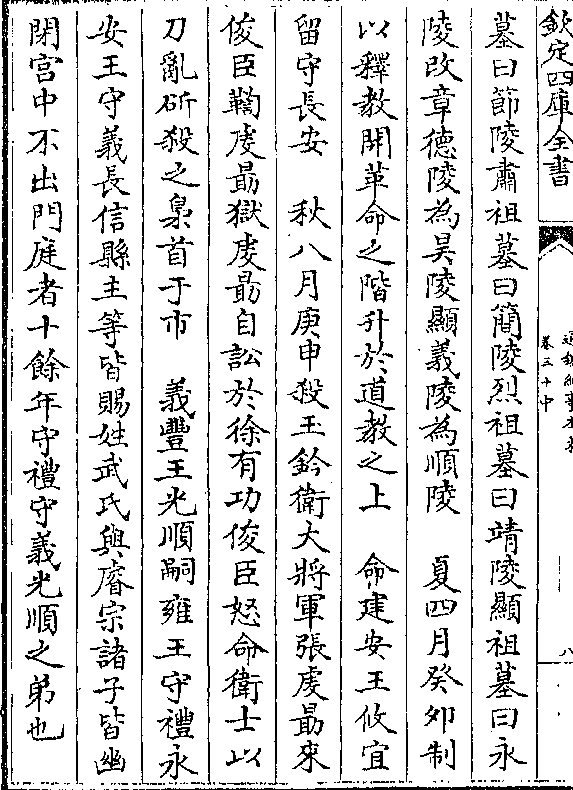 欽定四庫全書
通鑑紀事本末
卷三十中
八
墓曰節陵肅祖墓曰簡陵烈祖墓曰靖陵顯祖墓曰永
陵改章德陵為昊陵顯義陵為順陵　夏四月癸卯制
以釋教開革命之階升於道教之上　命建安王攸宜
留守長安　秋八月庚申殺玉鈐衛大將軍張虔勗來
俊臣鞫虔勗獄虔勗自訟於徐有功俊臣怒命衛士以
刀亂斫殺之梟首于市　義豐王光順嗣雍王守禮永
安王守義長信縣主等皆賜姓武氏與睿宗諸子皆幽
閉宫中不出門庭者十餘年守禮守義光順之弟也